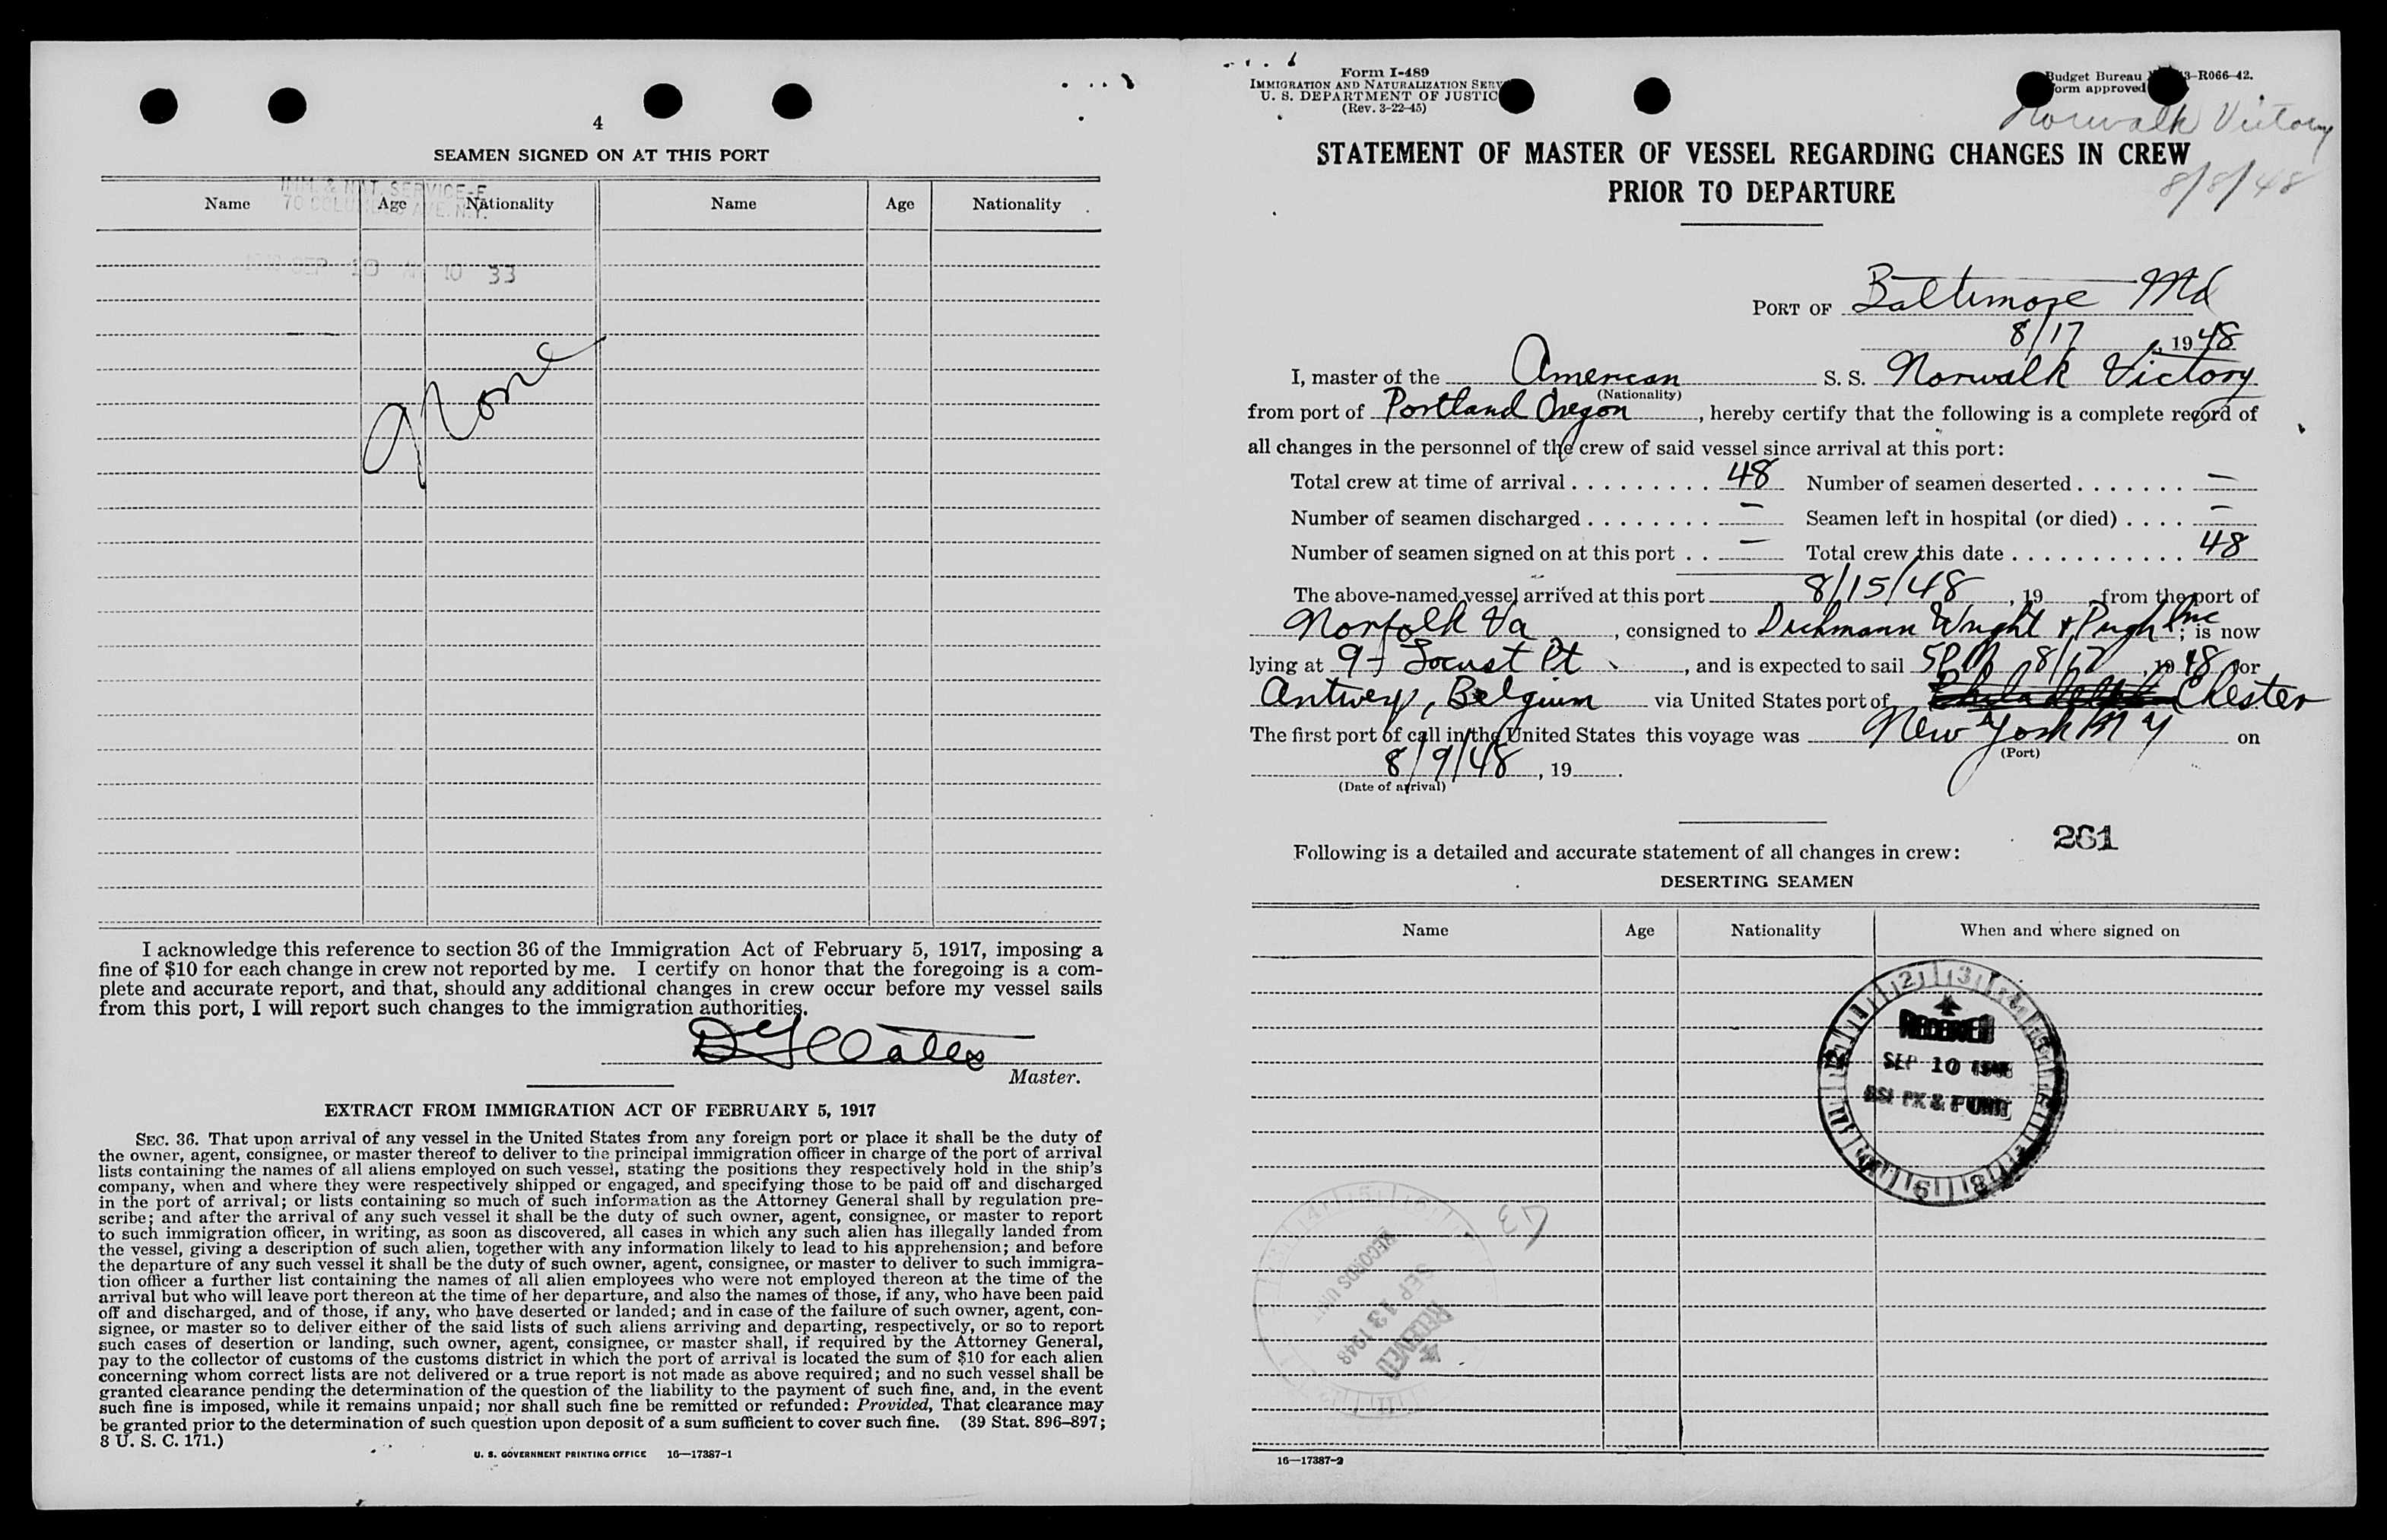 4
SEAMEN SIGNED ON AT THIS PORT
IMM. & NAT. SERVICE-F
70 COLUMBUS AVE. N.Y.
Name Age Nationality Name Age Nationality
SEP 10 AM 10 33
None
I acknowledge this reference to section 36 of the Immigration Act of February 5, 1917, imposing a
fine of $10 for each change in crew not reported by me. I certify on honor that the foregoing is a com-
plete and accurate report, and that, should any additional changes in crew occur before my vessel sails
from this port, I will report such changes to the immigration authorities.
Master.
EXTRACT FROM IMMIGRATION ACT OF FEBRUARY 5, 1917
SEC. 36. That upon arrival of any vessel in the United States from any foreign port or place it shall be the duty of
the owner, agent, consignee, or master thereof to deliver to the principal immigration officer in charge of the port of arrival
lists containing the names of all aliens employed on such vessel, stating the positions they respectively hold in the ship's
company, when and where they were respectively shipped or engaged, and specifying those to be paid off and discharged
in the port of arrival; or lists containing so much of such information as the Attorney General shall by regulation pre-
scribe; and after the arrival of any such vessel it shall be the duty of such owner, agent, consignee, or master to report
to such immigration officer, in writing, as soon as discovered, all cases in which any such alien has illegally landed from
the vessel, giving a description of such alien, together with any information likely to lead to his apprehension; and before
the departure of any such vessel it shall be the duty of such owner, agent, consignee, or master to deliver to such immigra-
tion officer a further list containing the names of all alien employees who were not employed thereon at the time of the
arrival but who will leave port thereon at the time of her departure, and also the names of those, if any, who have been paid
off and discharged, and of those, if any, who have deserted or landed; and in case of the failure of such owner, agent, con-
signee, or master so to deliver either of the said lists of such aliens arriving and departing, respectively, or so to report
such cases of desertion or landing, such owner, agent, consignee, or master shall, if required by the Attorney General,
pay to the collector of customs of the customs district in which the port of arrival is located the sum of $10 for each alien
concerning whom correct lists are not delivered or a true report is not made as above required; and no such vessel shall be
granted clearance pending the determination of the question of the liability to the payment of such fine, and, in the event
such fine is imposed, while it remains unpaid; nor shall such fine be remitted or refunded: Provided, That clearance may
be granted prior to the determination of such question upon deposit of a sum sufficient to cover such fine. (39 Stat. 896–897;
8 U. S. C. 171.)
U. S. GOVERNMENT PRINTING OFFICE 16—17387-1
Form I-489
IMMIGRATION AND NATURALIZATION SERV
U. S. DEPARTMENT OF JUSTIC
(Rev. 3-22-45)
Budget Bureau 3-R066-42.
orm approved
Norwalk Victory
8/8/48
STATEMENT OF MASTER OF VESSEL REGARDING CHANGES IN CREW
PRIOR TO DEPARTURE
PORT OF Baltimore Md
8/17, 1948
I, master of the American S. S. Norwalk Victory
(Nationality)
from port of Portland Oregon, hereby certify that the following is a complete record of
all changes in the personnel of the crew of said vessel since arrival at this port:
Total crew at time of arrival . . . . . . . . . 48 Number of seamen deserted . . . . . . . —
Number of seamen discharged . . . . . . . . — Seamen left in hospital (or died) . . . . —
Number of seamen signed on at this port . . — Total crew this date . . . . . . . . . . . . 48
The above-named vessel arrived at this port 8/15/48, 19 from the port of
Norfolk Va, consigned to Dichmann Wright & Pugh Inc; is now
lying at 9 Locust Pt, and is expected to sail 5PM 8/17, 1948 for
Antwerp, Belgium via United States port of Philadelphia Chester
The first port of call in the United States this voyage was New York N Y on
(Port)
8/9/48, 19 .
(Date of arrival)
261
Following is a detailed and accurate statement of all changes in crew:
DESERTING SEAMEN
Name Age Nationality When and where signed on
RECEIVED
SEP 10 1948
RECORDS UNIT
SEP 13 1948
RECEIVED
16—17387-2